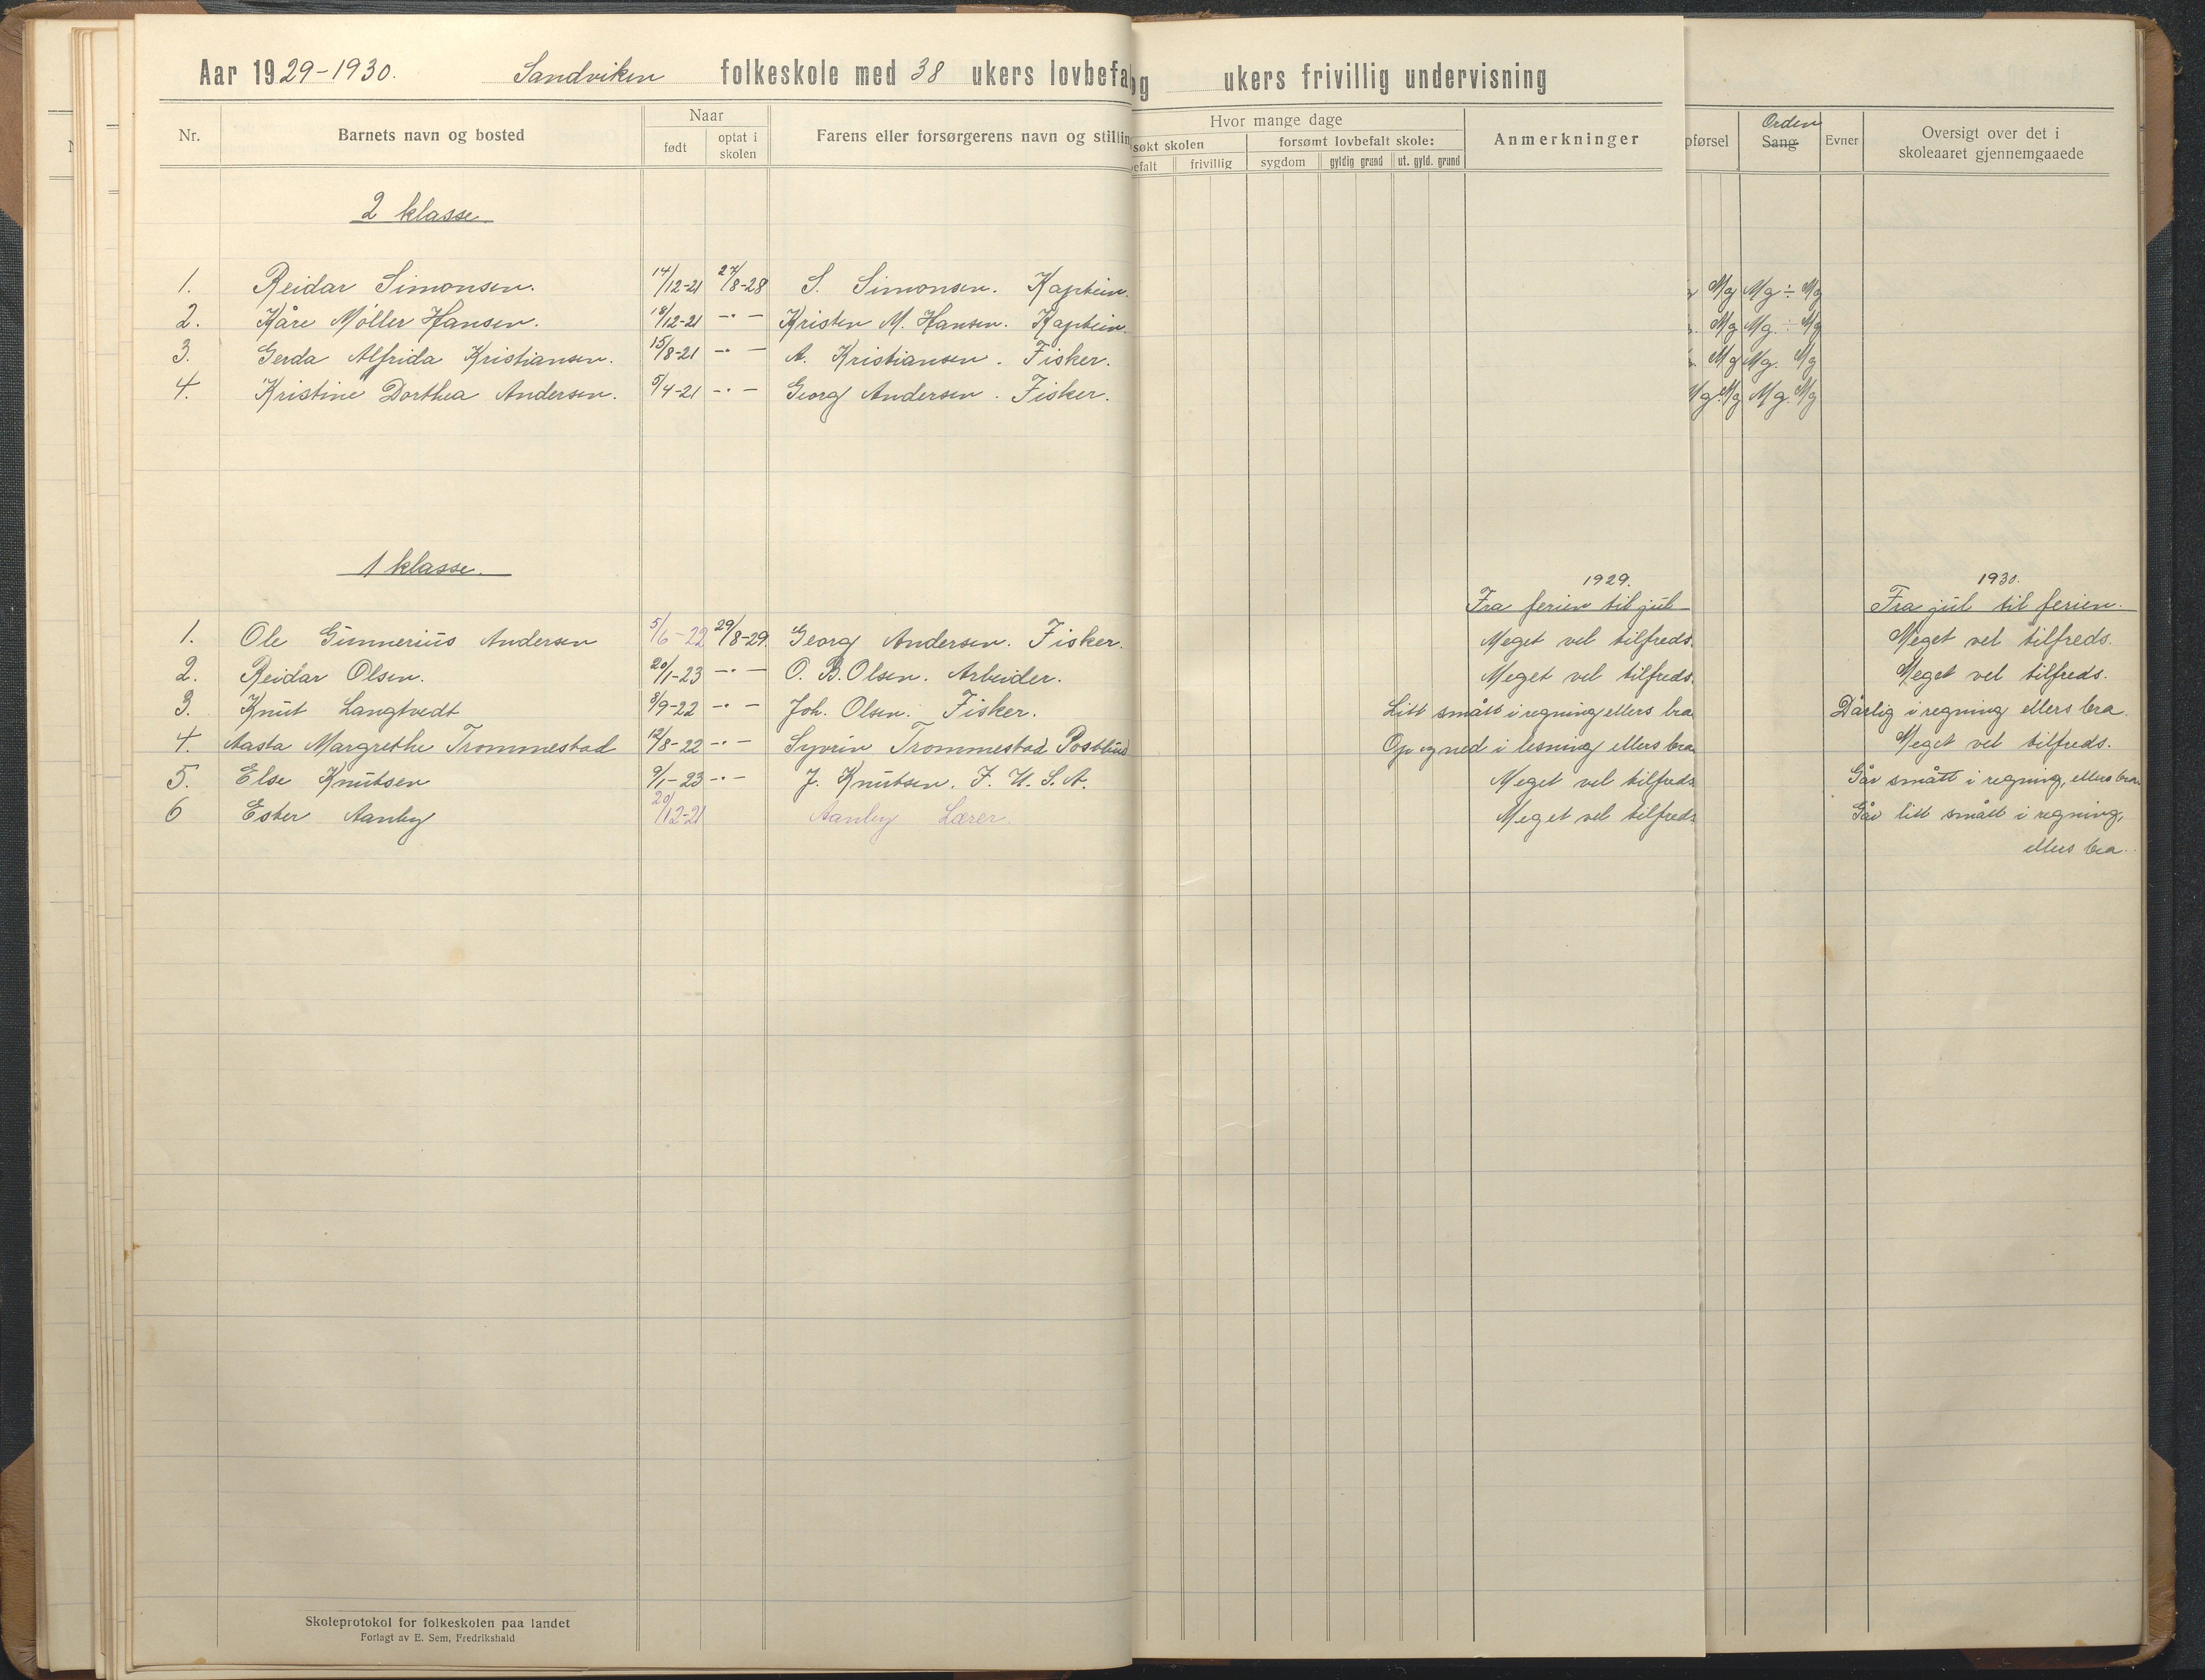 Aar 1929-1930. Sandviken folkeskole med 38 ukers lovbefa
og ukers frivillig undervisning
Nr. Barnets navn og bosted Naar født optat i skolen Farens eller forsørgerens navn og stillin
Hvor mange dage
søkt skolen forsømt lovbefalt skole: Anmerkninger
efalt frivillig sygdom gyldig grund ut. gyld. grund
pførsel Orden Sang Evner Oversigt over det i skoleaaret gjennemgaaede
2 klasse
1. Reidar Simonsen. 14/12-21 27/8-28 S. Simonsen. Kaptein. Mg Mg ÷ Mg
2. Kåre Møller Hansen. 18/12-21 -"- Kristen M. Hansen. Kaptein. Mg Mg. ÷ Mg
3. Gerda Alfrida Kristiansen. 15/8-21 -"- A. Kristiansen. Fisker. Mg Mg. Mg
4. Kristine Dorthea Andersen. 5/4-21 -"- Georg Andersen. Fisker. Mg Mg Mg. Mg
1 klasse.
1929. 1930.
Fra ferien til jul Fra jul til ferien.
1. Ole Gunnerius Andersen 5/6-22 29/8-29. Georg Andersen. Fisker. Meget vel tilfreds. Meget vel tilfreds.
2. Reidar Olsen. 20/1-23 -"- O. B. Olsen. Arbeider. Meget vel tilfreds. Meget vel tilfreds.
3. Knut Langtvedt 8/9-22 -"- Joh. Olsen. Fisker. Litt smått i regning ellers bra Dårlig i regning ellers bra.
4. Aasta Margrethe Trommestad 12/8-22 -"- Syvrin Trommestad Postbud Op og ned i lesning ellers bra Meget vel tilfreds.
5. Else Knutsen 9/1-23 -"- J. Knutsen. F. U. S. A. Meget vel tilfreds Går smått i regning, ellers bra
6 Ester Aanby 20/12-21 Aanby Lærer. Meget vel tilfreds Går litt smått i regning,
ellers bra.
Skoleprotokol for folkeskolen paa landet
Forlagt av E. Sem, Fredrikshald